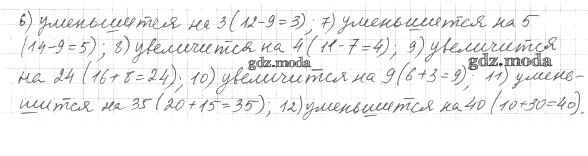 6) уменьшится на 3 (12-9=3); 7) уменьшится на 5
(14-9=5); 8) увеличится на 4 (11-7=4); 9) увеличится
gdz.moda
gdz.moda
на 24 (16+8=24); 10) увеличится на 9 (6+3=9); 11) умень-
шится на 35 (20+15=35); 12) уменьшится на 40 (10+30=40).